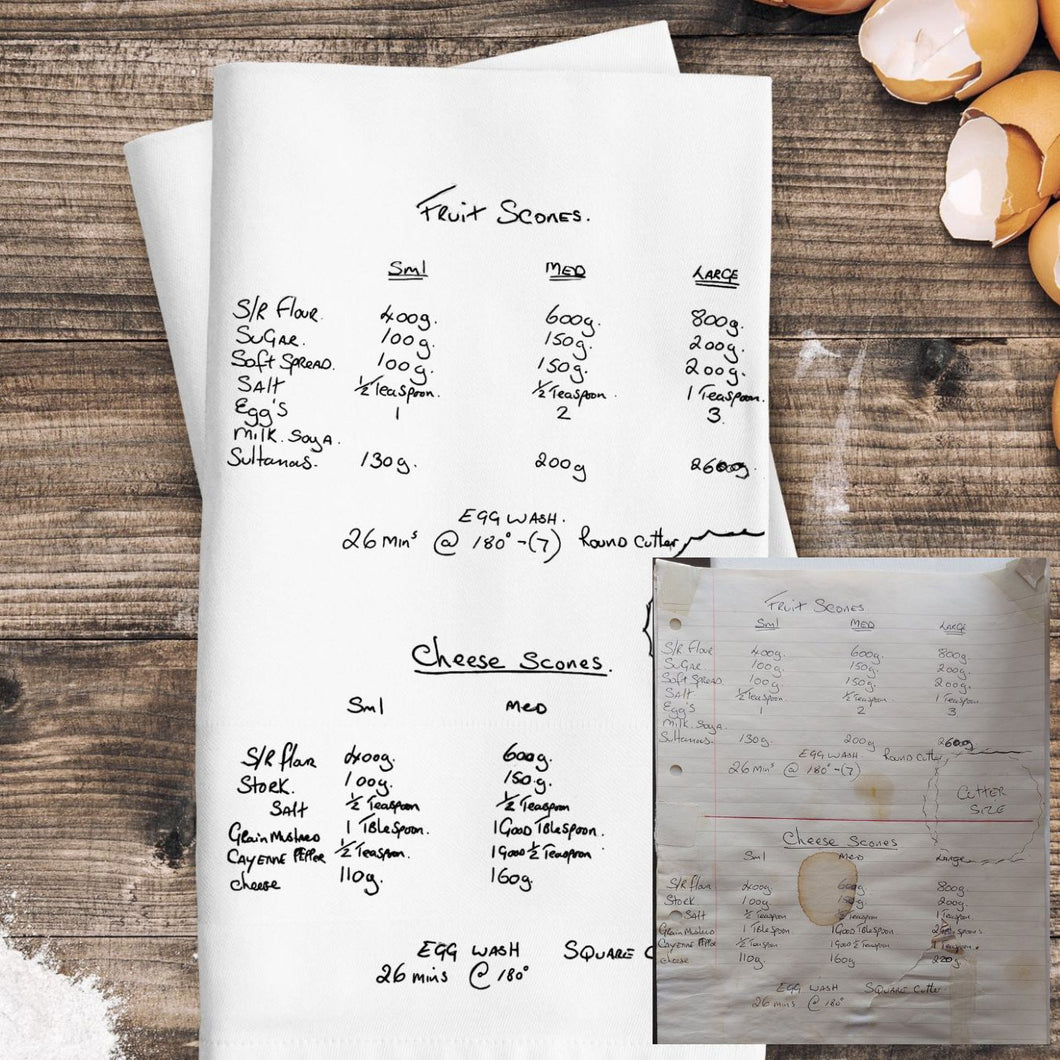 Fruit Scones.
Sml MED LARGE
S/R Flour. 400g. 600g. 800g.
SuGAR. 100g. 150g. 200g.
Soft SPREAD. 100g. 150g. 200g.
SAlt ½ Teaspoon. ½ Teaspoon. 1 Teaspoon.
Egg's 1 2 3.
Milk. Soya.
Sultanas. 130g. 200g 260g.
EGG WASH.
26 Mins @ 180° -(7) Round Cutter
Cheese Scones.
Sml MED
S/R flour 400g. 600g.
Stork. 100g. 150g.
SAlt ½ Teaspoon ½ Teaspoon
Grain Mustard 1 TbleSpoon. 1 Good TbleSpoon.
CAYENNE PEPPer ½ Teaspoon. 1 Good ½ Teaspoon
cheese 110g. 160g
EGG WASH SQUARE C
26 mins @ 180°
Fruit Scones
Sml MED LARGE
S/R Flour 400g. 600g. 800g.
SuGAR. 100g. 150g. 200g.
Soft SPREAD. 100g 150g. 200g.
SAlt ½ Teaspoon ½ Teaspoon. 1 Teaspoon
Egg's 1 2 3
Milk. Soya.
Sultanas. 130g. 200g 260g
EGG WASH Round Cutter
26 Mins @ 180° -(7)
CUTTER
SIZE
Cheese Scones
Sml MED Large
S/R flour 400g. 600g 800g
Stork 100g. 150g 200g.
SAlt ½ Teaspoon ½ Teaspoon 1 Teaspoon
Grain Mustard 1 TbleSpoon. 1 Good TbleSpoon
Cayenne PEPPer ½ Teaspoon 1 Good ½ Teaspoon 1 Teaspoon.
cheese 110g. 160g 220g
EGG WASH SQUARE Cutter
26 mins @ 180°